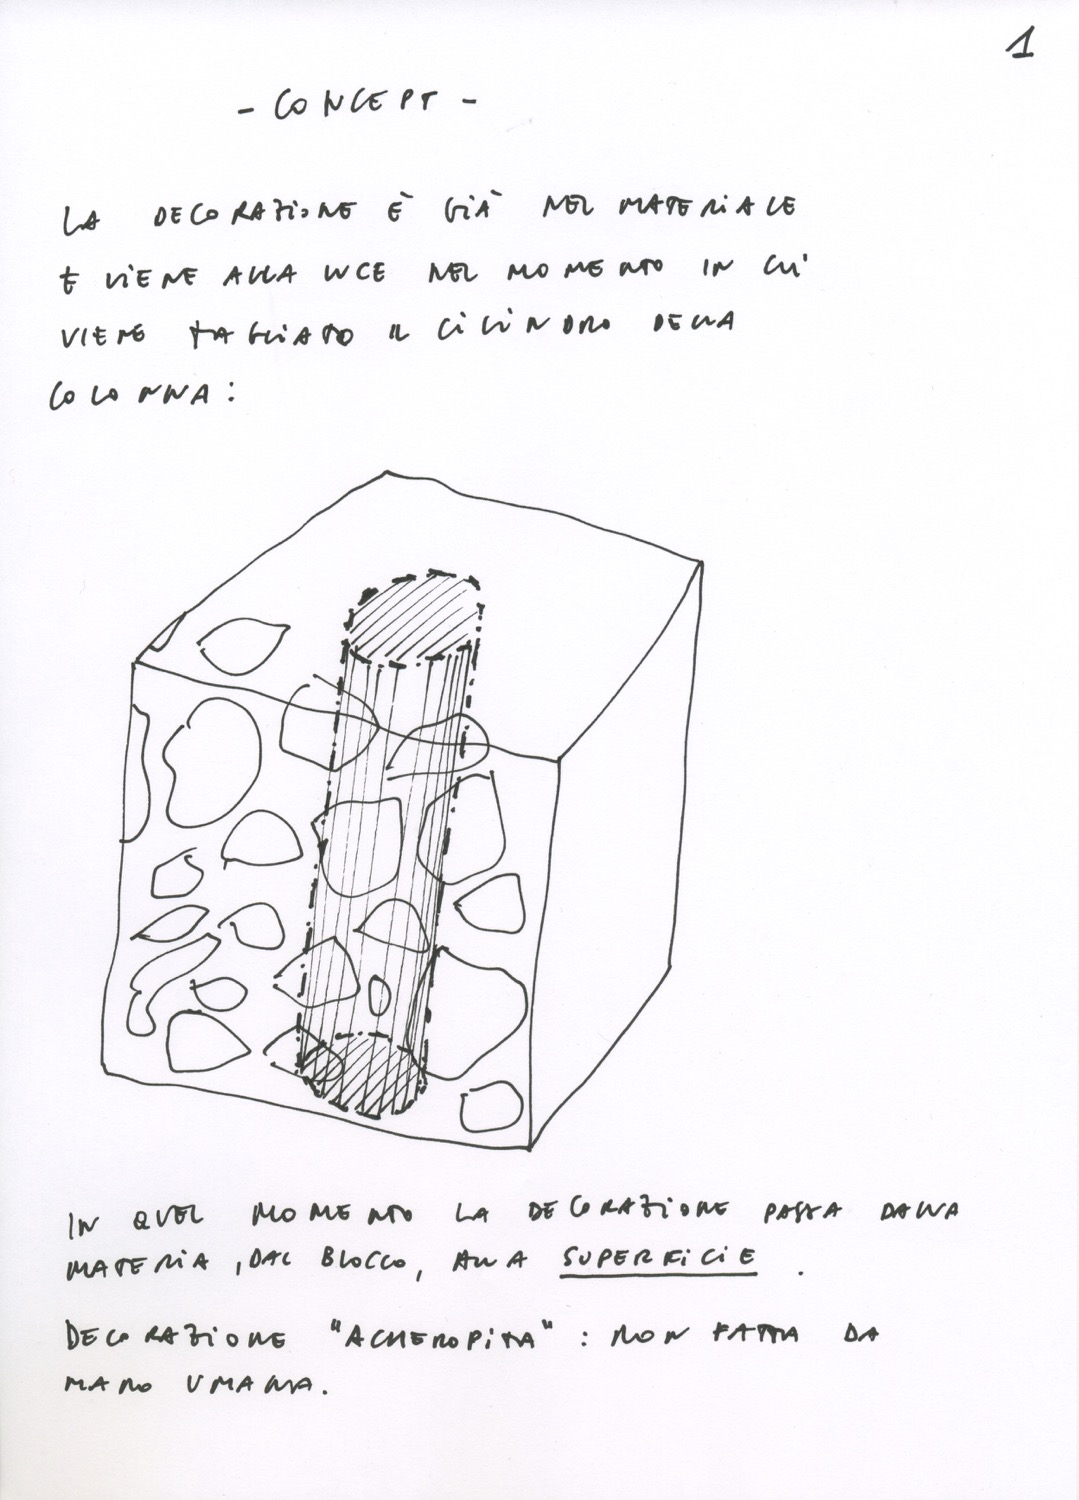 1
- CONCEPT -
LA DECORAZIONE È GIÀ NEL MATERIALE
E VIENE ALLA LUCE NEL MOMENTO IN CUI
VIENE TAGLIATO IL CILINDRO DELLA
COLONNA:
IN QUEL MOMENTO LA DECORAZIONE PASSA DALLA
MATERIA, DAL BLOCCO, ALLA SUPERFICIE.
DECORAZIONE "ACHEROPITA": NON FATTA DA
MANO UMANA.